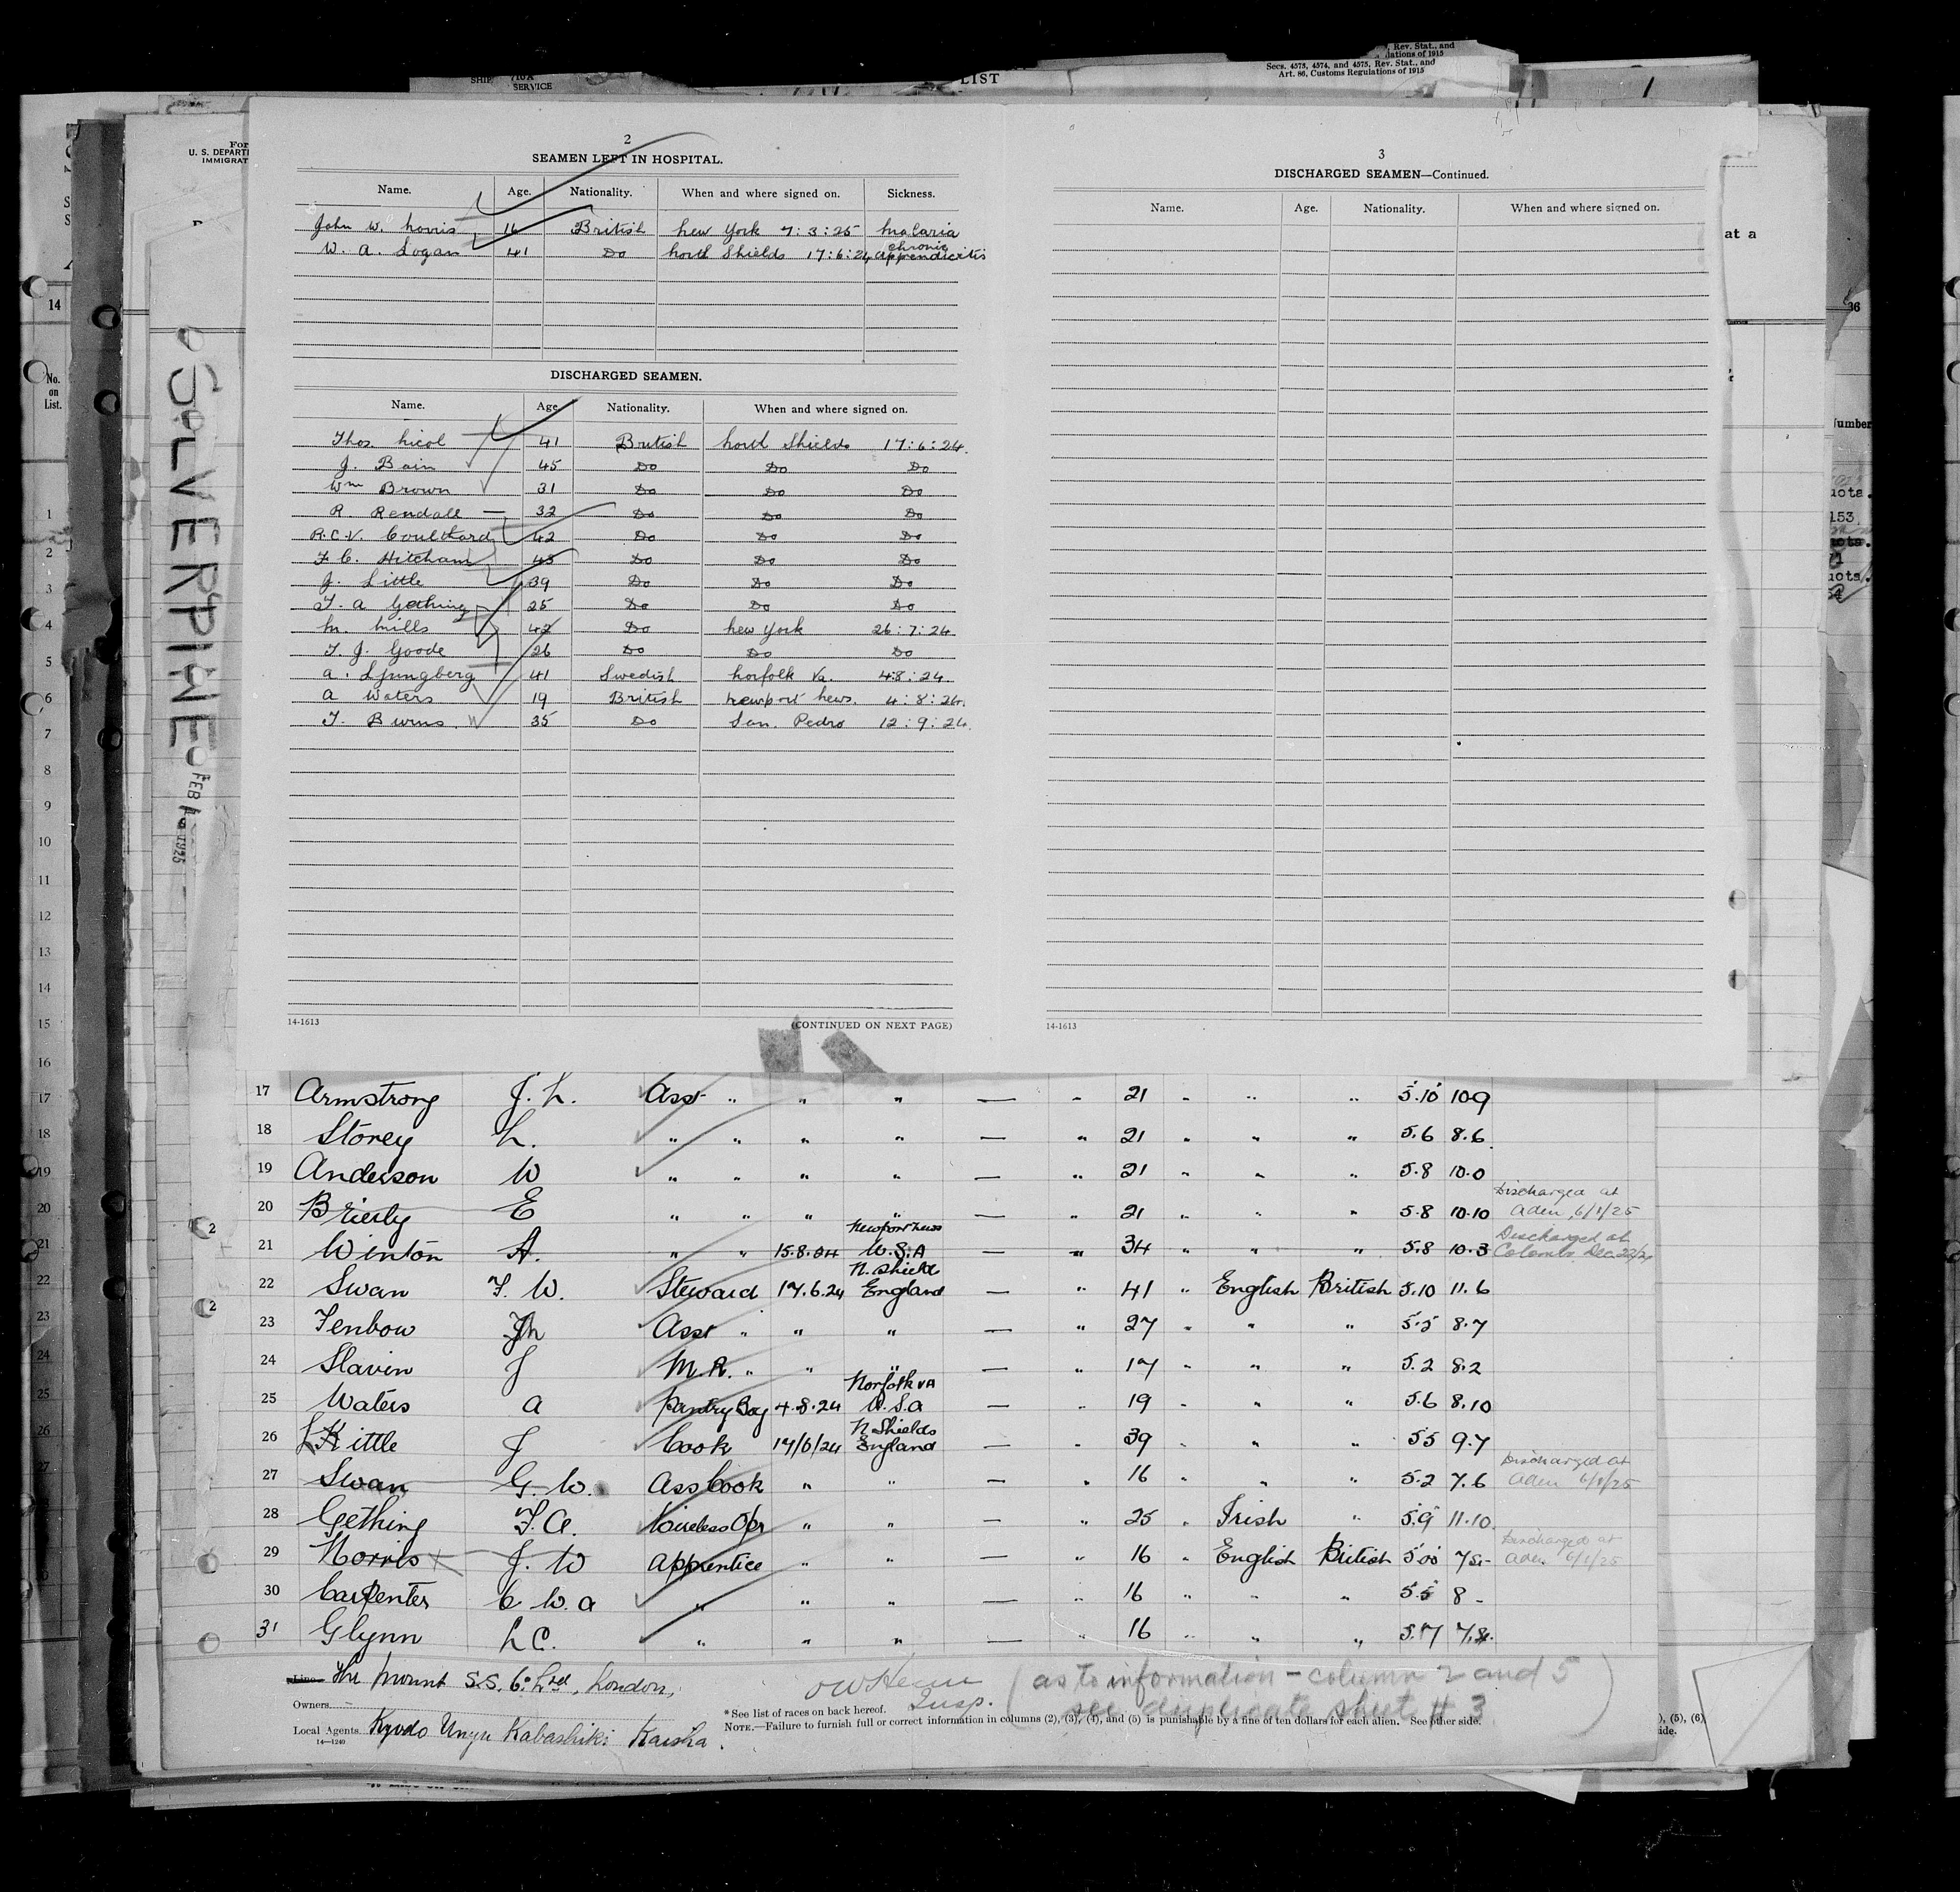 , Rev. Stat., and
lations of 1915
Secs. 4573, 4574, and 4575, Rev. Stat., and
Art. 86, Customs Regulations of 1915
SHIP
SERVICE
LIST
For
U. S. DEPARTM
IMMIGRAT
14
No.
on
List.
SOLVERPINE
FEB 1925
2
SEAMEN LEFT IN HOSPITAL.
Name. Age. Nationality. When and where signed on. Sickness.
John W. Norris 16 British New York 7:3:25 Malaria
W. A. Logan 41 Do North Shields 17:6:24 chronic appendicitis
DISCHARGED SEAMEN.
Name. Age. Nationality. When and where signed on.
Thos. Nicol 41 British North Shields 17:6:24.
J. Bain 45 Do Do Do
Wm Brown 31 Do Do Do
R. Rendall 32 Do Do Do
R.C.V. Coulthard 42 Do Do Do
F C. Hitcham 45 Do Do Do
J. Little 39 Do Do Do
T. A Gething 25 Do Do Do
M. Mills 42 Do New York 26:7:24
T. J. Goode 26 Do Do Do
A. Ljungberg 41 Swedish Norfolk Va. 4:8:24.
A Waters 19 British Newport News. 4:8:24.
T. Burns. 35 Do San. Pedro 12:9:24.
14-1613 (CONTINUED ON NEXT PAGE)
3
DISCHARGED SEAMEN—Continued.
Name. Age. Nationality. When and where signed on.
14-1613
at a
36
Number
17 Armstrong J. L. Asst " " " — " 21 " " " 5.10 10.9
18 Storey L. " " " " — " 21 " " " 5.6 8.6
19 Anderson W " " " " — " 21 " " " 5.8 10.0
20 Brierly E " " " " — " 21 " " " 5.8 10.10 Discharged at Aden, 6/1/25
21 Winton A. " " 15.8.24 Newport News U.S.A — " 34 " " " 5.8 10.3 Discharged at Colombo Dec. 22/24
22 Swan F. W. Steward 17.6.24 N. Shields England — " 41 " English British 5.10 11.6
23 Tenbow Asst " " " — " 27 " " " 5.5 8.7
24 Slavin J M.R. " " " — " 17 " " " 5.2 8.2
25 Waters A Pantry Boy 4.8.24 Norfolk VA U.S.A — " 19 " " " 5.6 8.10
26 Little J Cook 17/6/24 N. Shields England — " 39 " " " 5.5 9.7
27 Swan G. W. Ass Cook " " — " 16 " " " 5.2 7.6 Discharged at Aden 6/1/25
28 Gething T. A. Wireless Opr " " — " 25 " Irish " 5.9 11.10
29 Norris J. W Apprentice " " — " 16 " English British 5.0 Discharged at Aden 6/1/25
30 Carpenter C W. A " " " — " 16 " " " 5.5 8 -
31 Glynn L C. " " " — " 16 " " " 5.7 7.8
Line The Mount S.S. Co. Ltd, London,
Owners.
Local Agents Kyodo Unyu Kabashiki Kaisha.
14—1240
Insp.
(as to information – column 2 and 5
see duplicate sheet # 3)
* See list of races on back hereof.
NOTE.—Failure to furnish full or correct information in columns (2), (3), (4), and (5) is punishable by a fine of ten dollars for each alien. See other side.
), (5), (6)
ide.